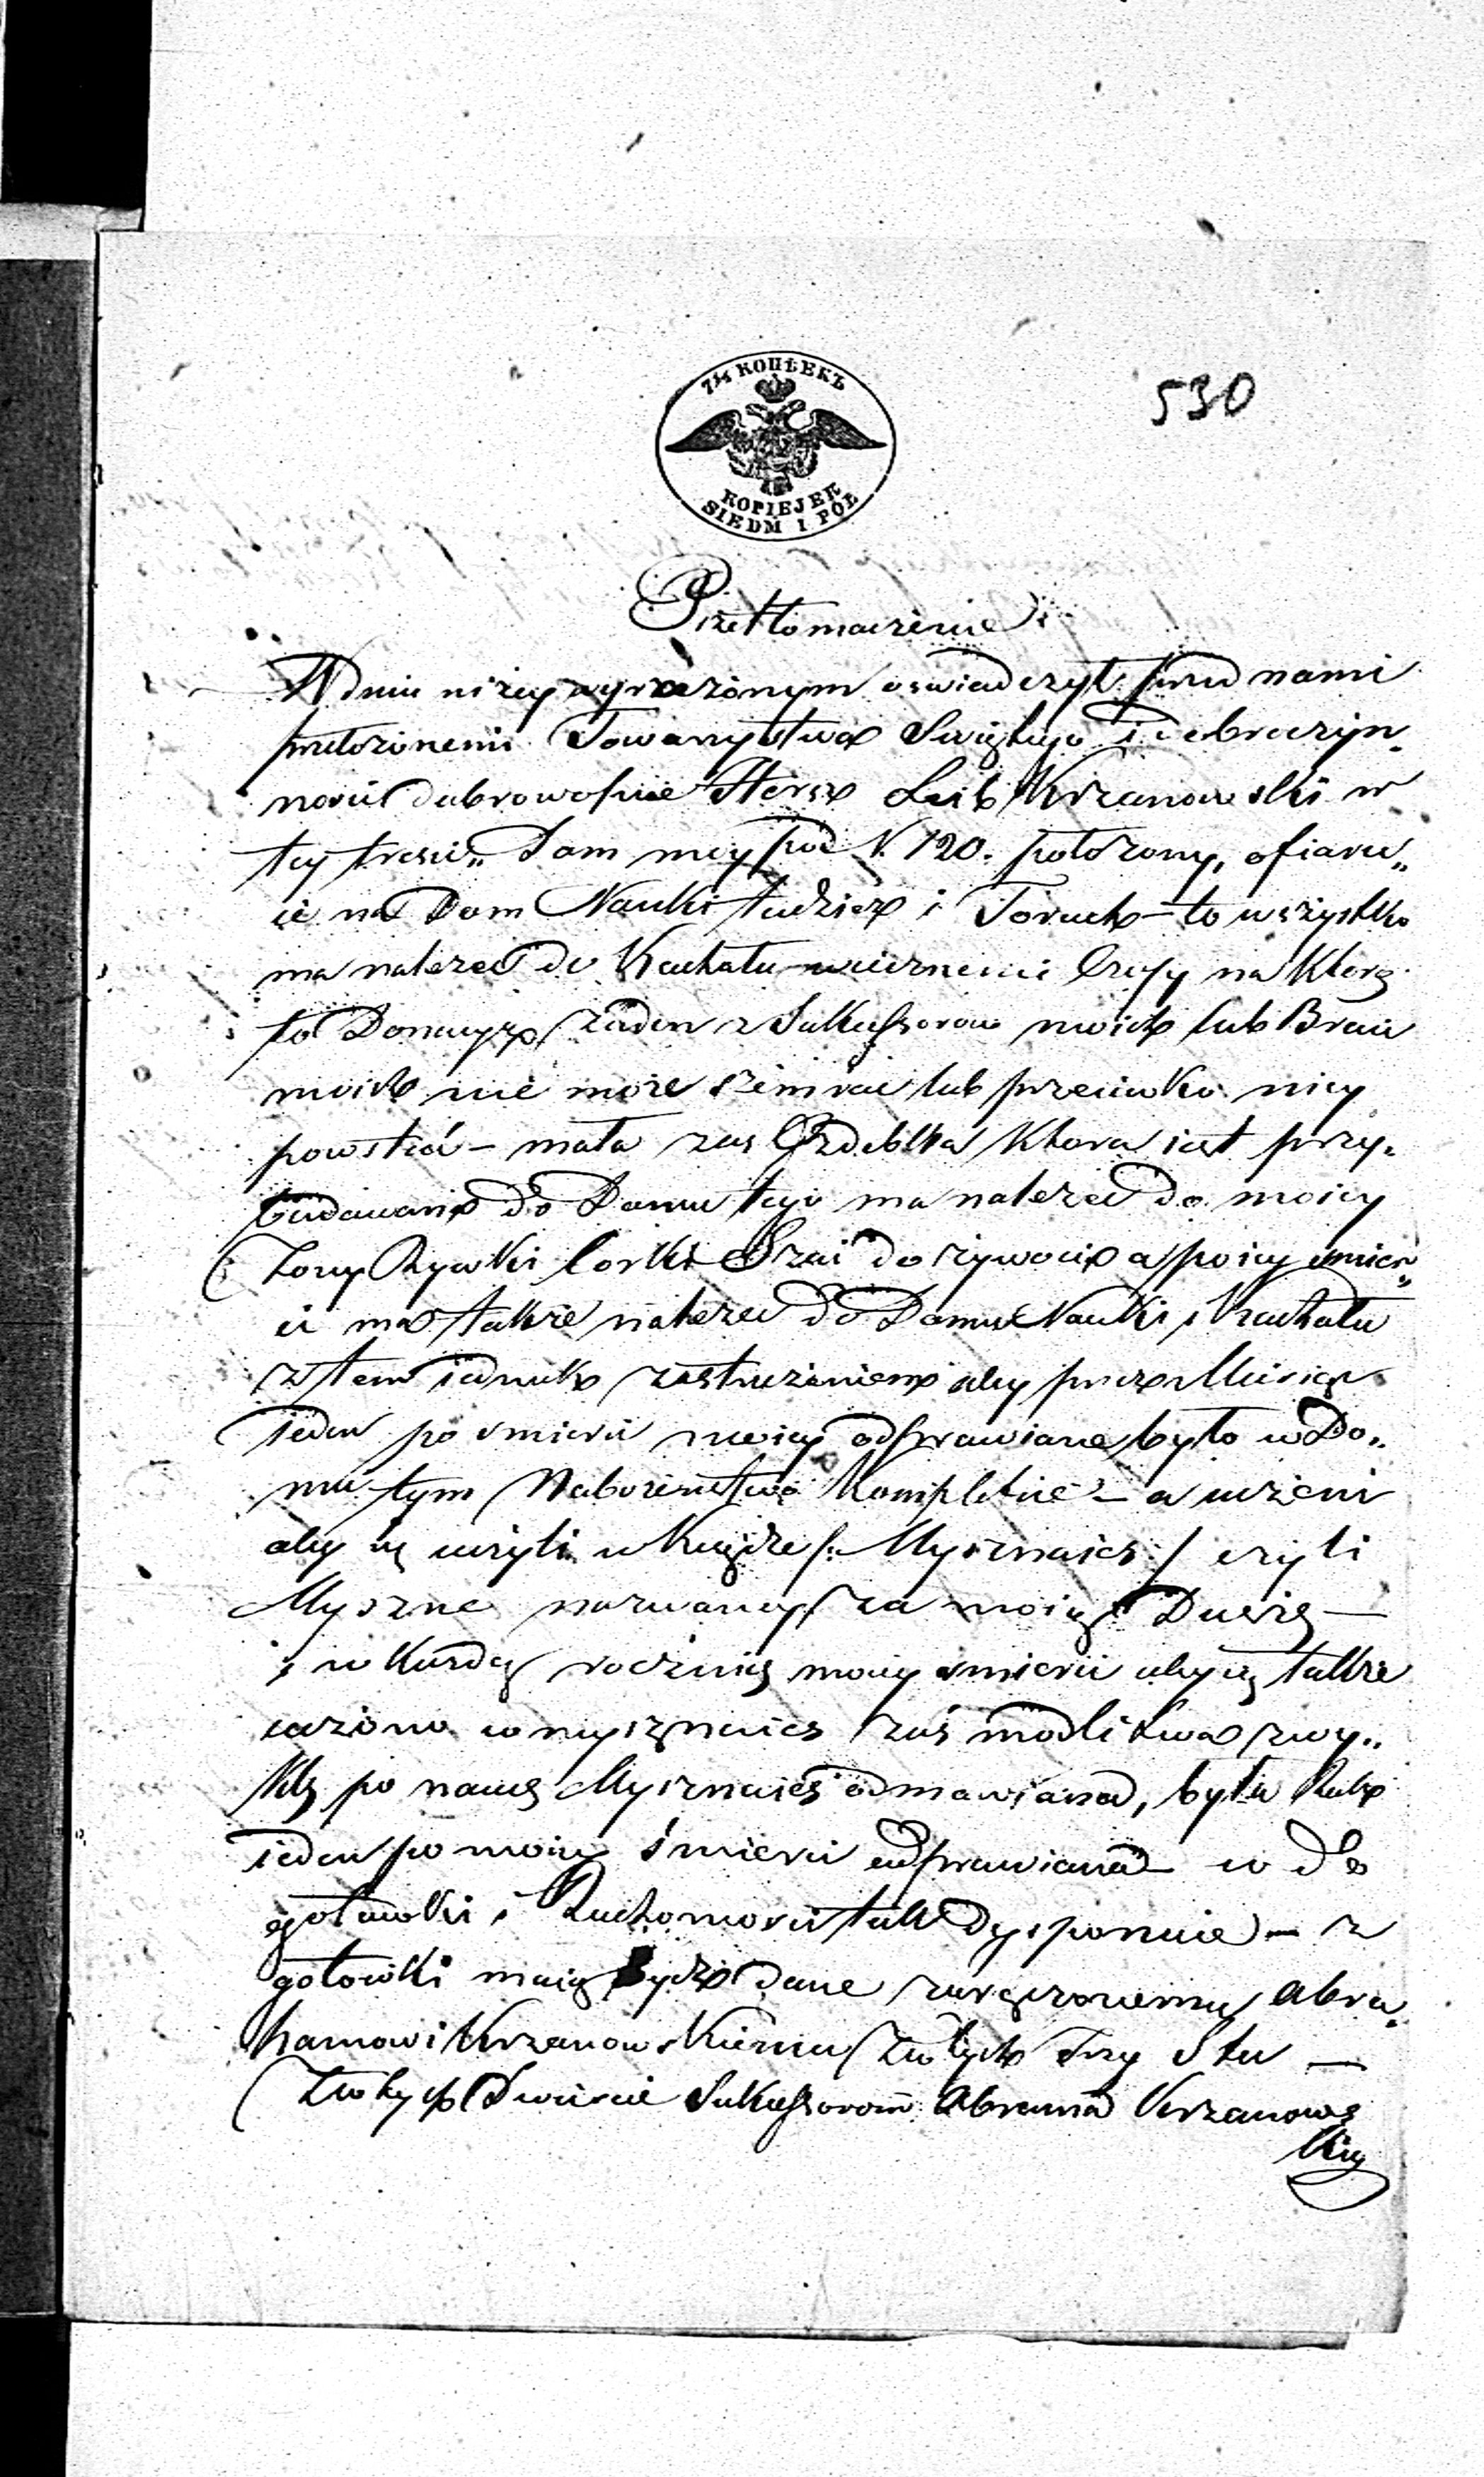 7½ КОПѢЕКЪ
KOPIEJEK
SIEDM I PÓŁ
530
Przetłomaczenie
W dniu niżey wyrażonym oświadczył przed nami
przełożonemi Towarzystwa Świętego i dobroczyn„
ności dobrowolnie Hersz Leib Krzanowski w
tey treści„ Dom mój pod N. 120. położony, ofiaru„
ie na Dom Nauki tudzież i Torach – to wszystko
ma należeć do Kachału wiecznemi Czasy na którą
to Donacyą żaden z Sukcessorow moich lub Braci
moich nie może szemrać lub przeciwko niey
powstać – mała zaś Izdebka która iest przy„
budowana do Domu tego ma należeć do moiey
Żony Rywki Corki Szai do żywocia a po iey śmier„
ci ma także należeć do Domu Nauki i Kachału
z tem iednak zastrzeżeniem aby przez Miesiąc
ieden po śmierci moiey odprawiane było w Do„
mu tym Nabożeństwo Kompletnie – a uczeni
aby się uczyli w Księdze /: Mysznaies :/ czyli
Myszne nazwaney za moię Duszę —
i w każdą rocznicę moiey śmierci aby się także
uczono w mysznaies zaś modlitwa zwy„
kła po nauce Mysznaies odmawiana, była Rok
ieden po moiey śmierci odprawiana – co do
gotowki i Ruchomości tak dysponuie – z
gotowki maią bydź dane zaręczonemu Abra„
hamowi Krzanowskiemu Złotych Trzy Sta —
Złotych Dwieście Sukcessorom Abrama Krzanows
kiey